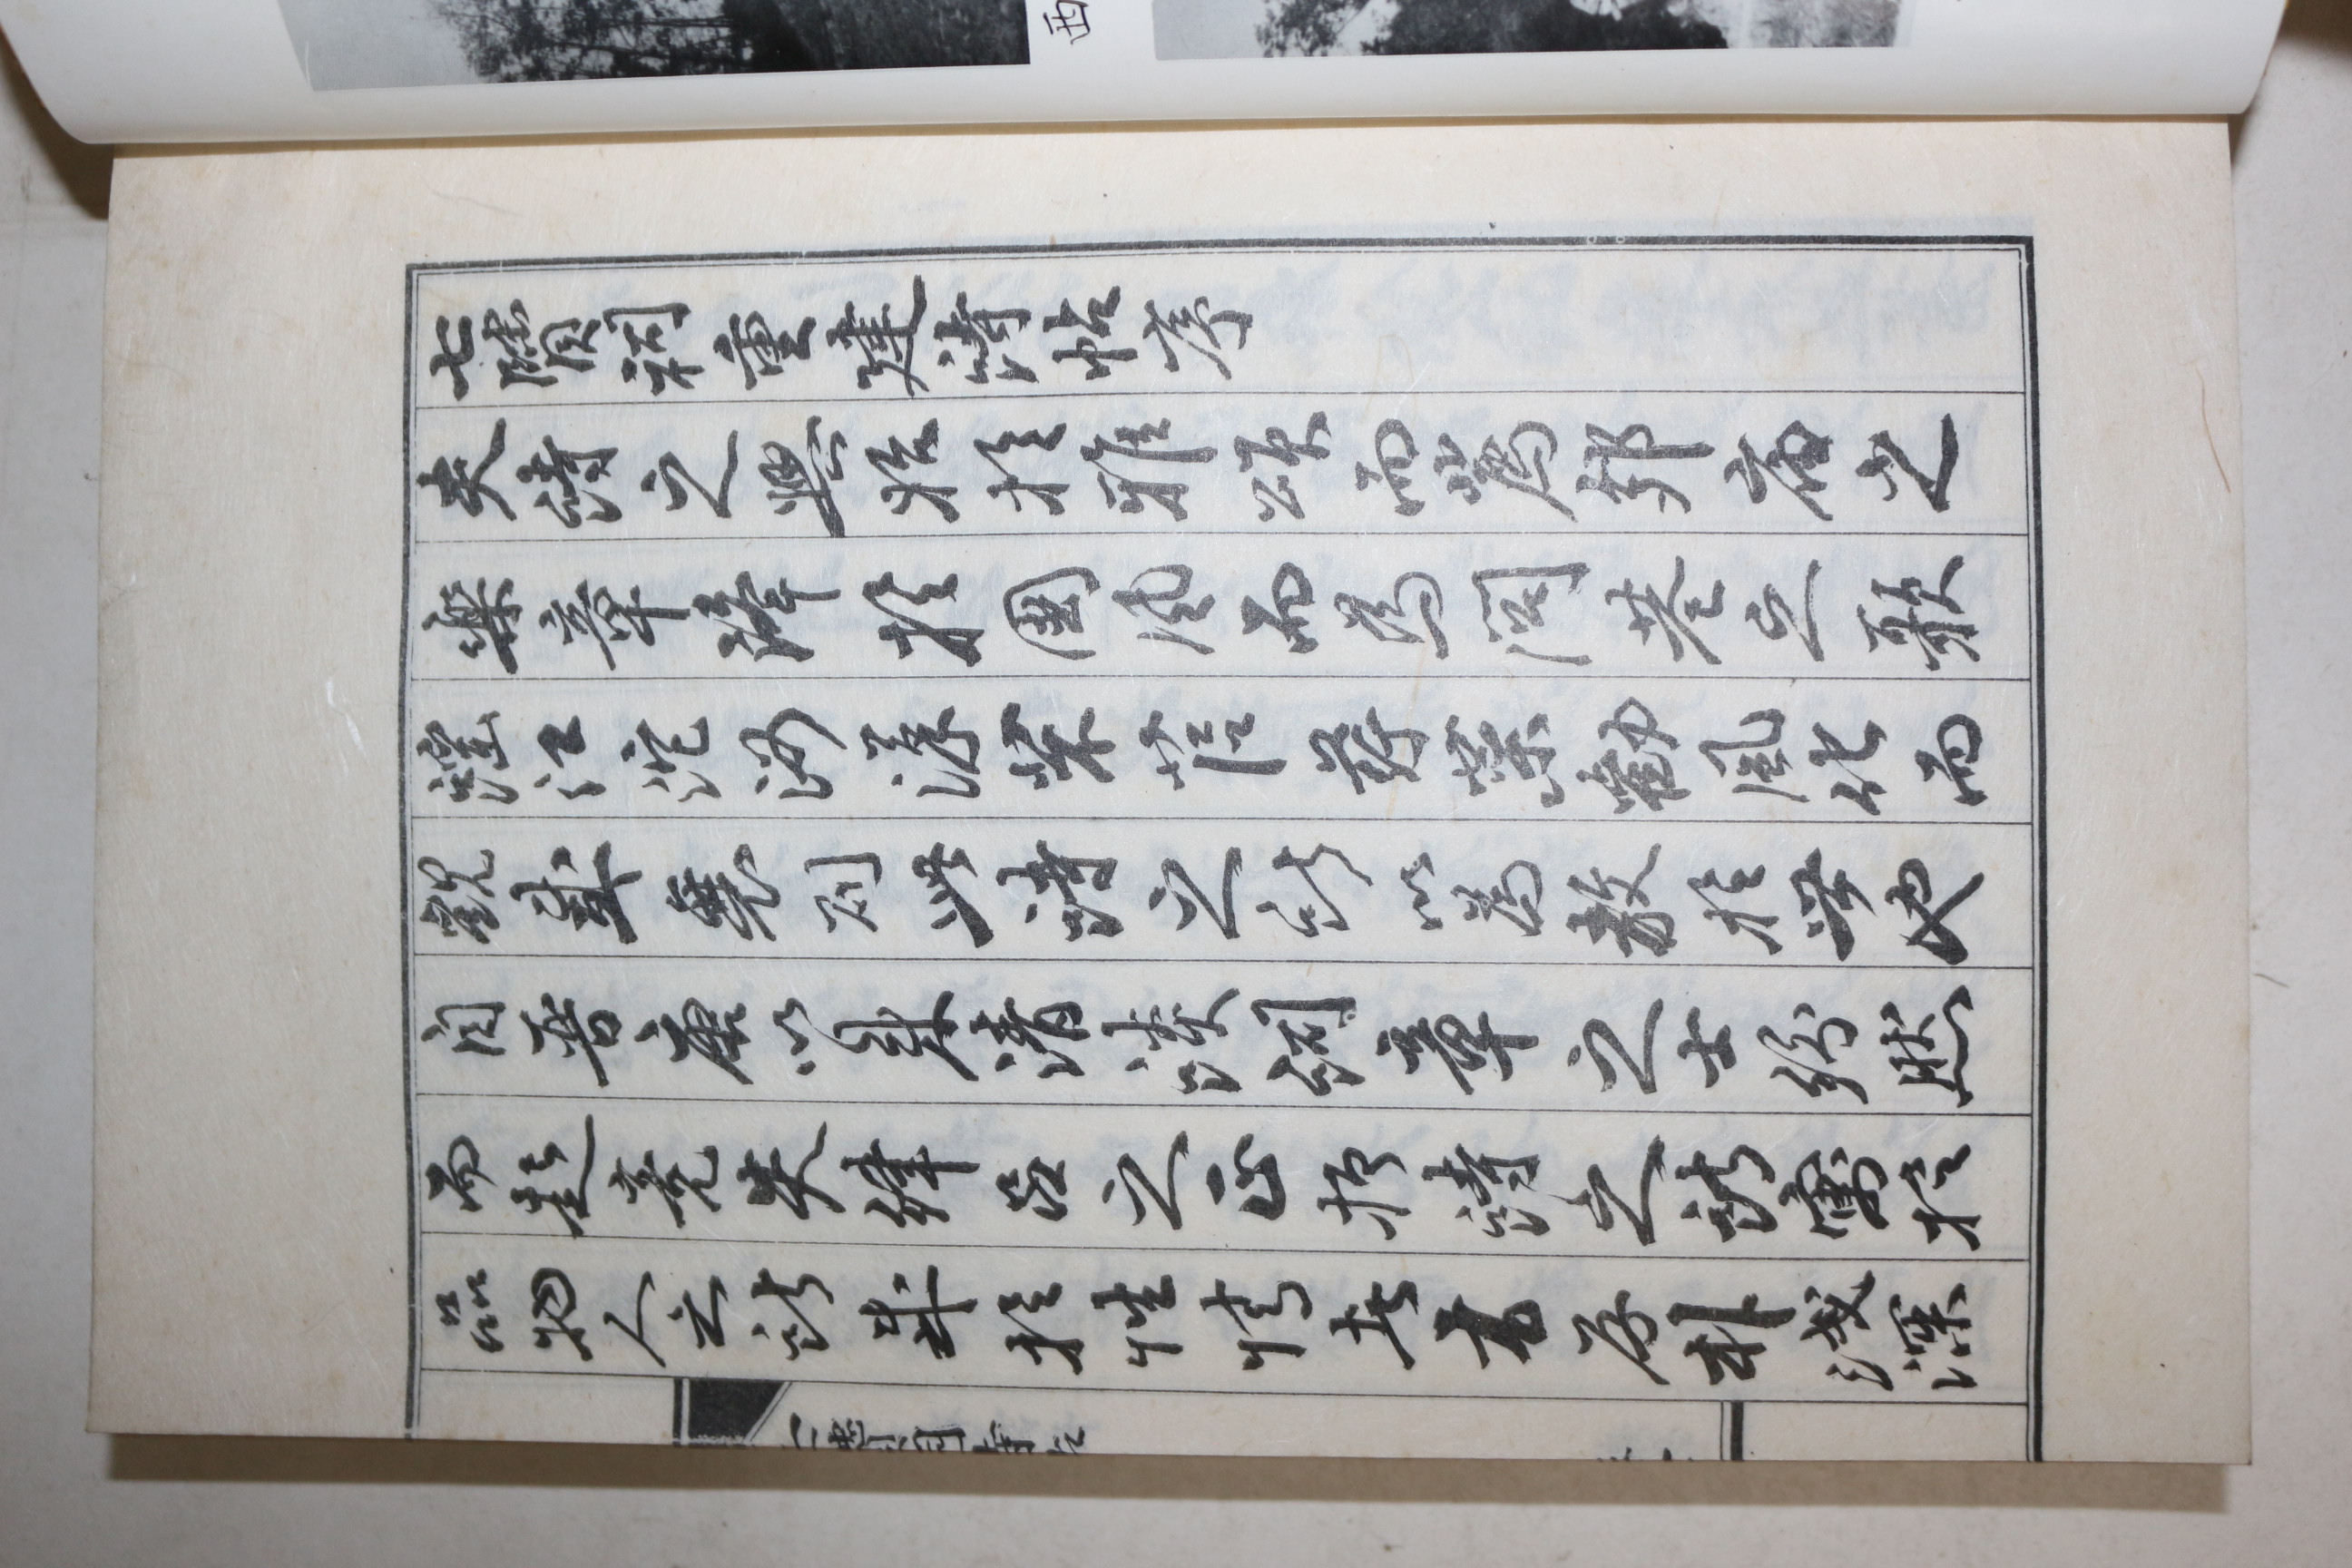 西
七賢祠重建詩帖序
夫詩之興始於雅頌而薦郊廟之
樂章降於國風而爲閭巷之歌
謠江沱河漢芣苢荇菜勸風化而
觀盛衰則此詩之所以爲敎於世也
自晉唐以來淸談詞章之士紛然
而起竟失律呂之正抑詩之所寓於
品物人之所感於性情者有厚朴淺深